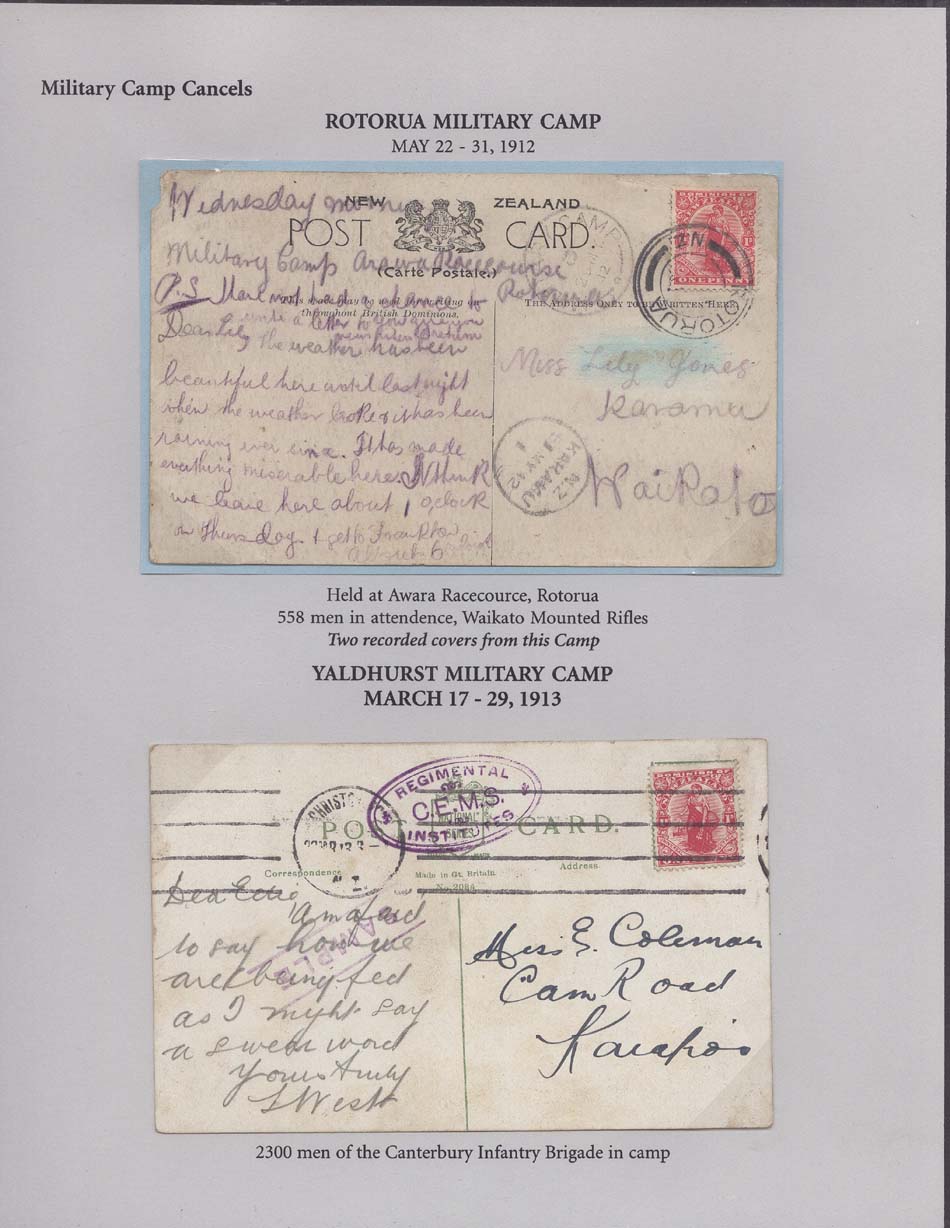 Military Camp Cancels
ROTORUA MILITARY CAMP
MAY 22 - 31, 1912
Wednesday
NEW ZEALAND
POST CARD.
(Carte Postale.)
Military Camp Arawa Racecourse
Rotorua
CAMP
12
DOMINION OF
1D
ONE PENNY
N.Z.
ROTORUA
P.S.
throughout British Dominions.
THE ADDRESS ONLY TO BE WRITTEN HERE
Dear Lily
The weather has been
beautiful here until last night
when the weather broke & it has been
raining ever since. It has made
everything miserable here. I think
we leave here about 1 oclock
on Thursday & get to Frankton
about 6
Miss Lily Jones
Karamu
Waikato
KARAMU
31 MY 12
N.Z
Held at Awara Racecource, Rotorua
558 men in attendence, Waikato Mounted Rifles
Two recorded covers from this Camp
YALDHURST MILITARY CAMP
MARCH 17 - 29, 1913
REGIMENTAL
C.E.M.S.
INSTITUTES
CHRISTCHURCH
N.Z.
POST CARD.
Correspondence
Made in Gt. Britain.
Address.
No. 2088
Dear Ettie,
to say how we
are being fed
as I might say
a swear word
Yours truly
L West
Miss E. Coleman
Cam Road
Kaiapoi
2300 men of the Canterbury Infantry Brigade in camp